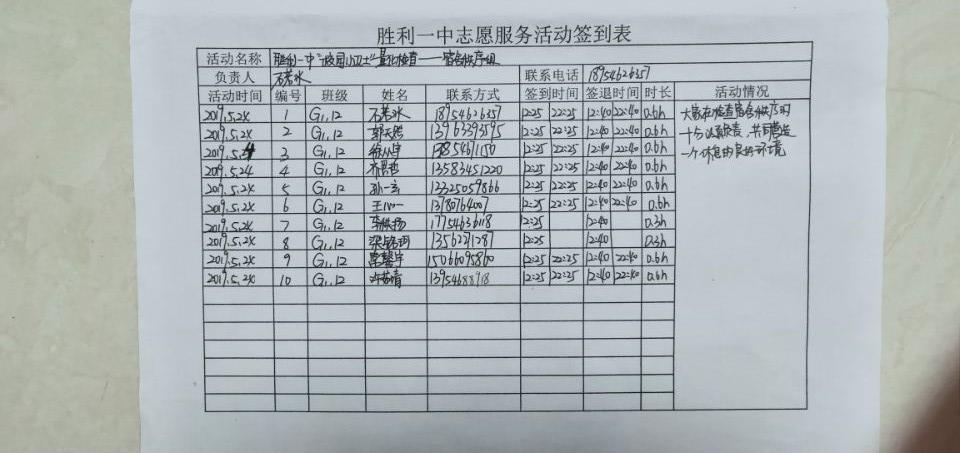 胜利一中志愿服务活动签到表
活动名称 胜利一中"校园小卫士"量化检查——宿舍秩序组
负责人 石若水 联系电话 18954626357
活动时间 编号 班级 姓名 联系方式 签到时间 签退时间 时长 活动情况
2019.5.24 1 G1.12 石若水 18954626357 12:25 22:25 12:40 22:40 0.6h 大家在检查宿舍秩序时
2019.5.24 2 G1.12 13963393595 12:25 22:25 12:40 22:40 0.6h 十分认真负责,共同营造
2019.5.24 3 G1.12 12:25 22:25 12:40 22:40 0.6h 一个休息的良好环境
2019.5.24 4 G1.12 13583451220 12:25 22:25 12:40 22:40 0.6h
2019.5.24 5 G1.12 孙一玄 13325059866 12:25 22:25 12:40 22:40 0.6h
2019.5.24 6 G1.12 王心一 13780764007 12:25 22:25 12:40 22:40 0.6h
2019.5.24 7 G1.12 17754636118 12:25 12:40 0.3h
2019.5.24 8 G1.12 13562271287 12:25 12:40 0.3h
2019.5.24 9 G1.12 15066095860 12:25 22:25 12:40 22:40 0.6h
2019.5.24 10 G1.12 13954688918 12:25 22:25 12:40 22:40 0.6h